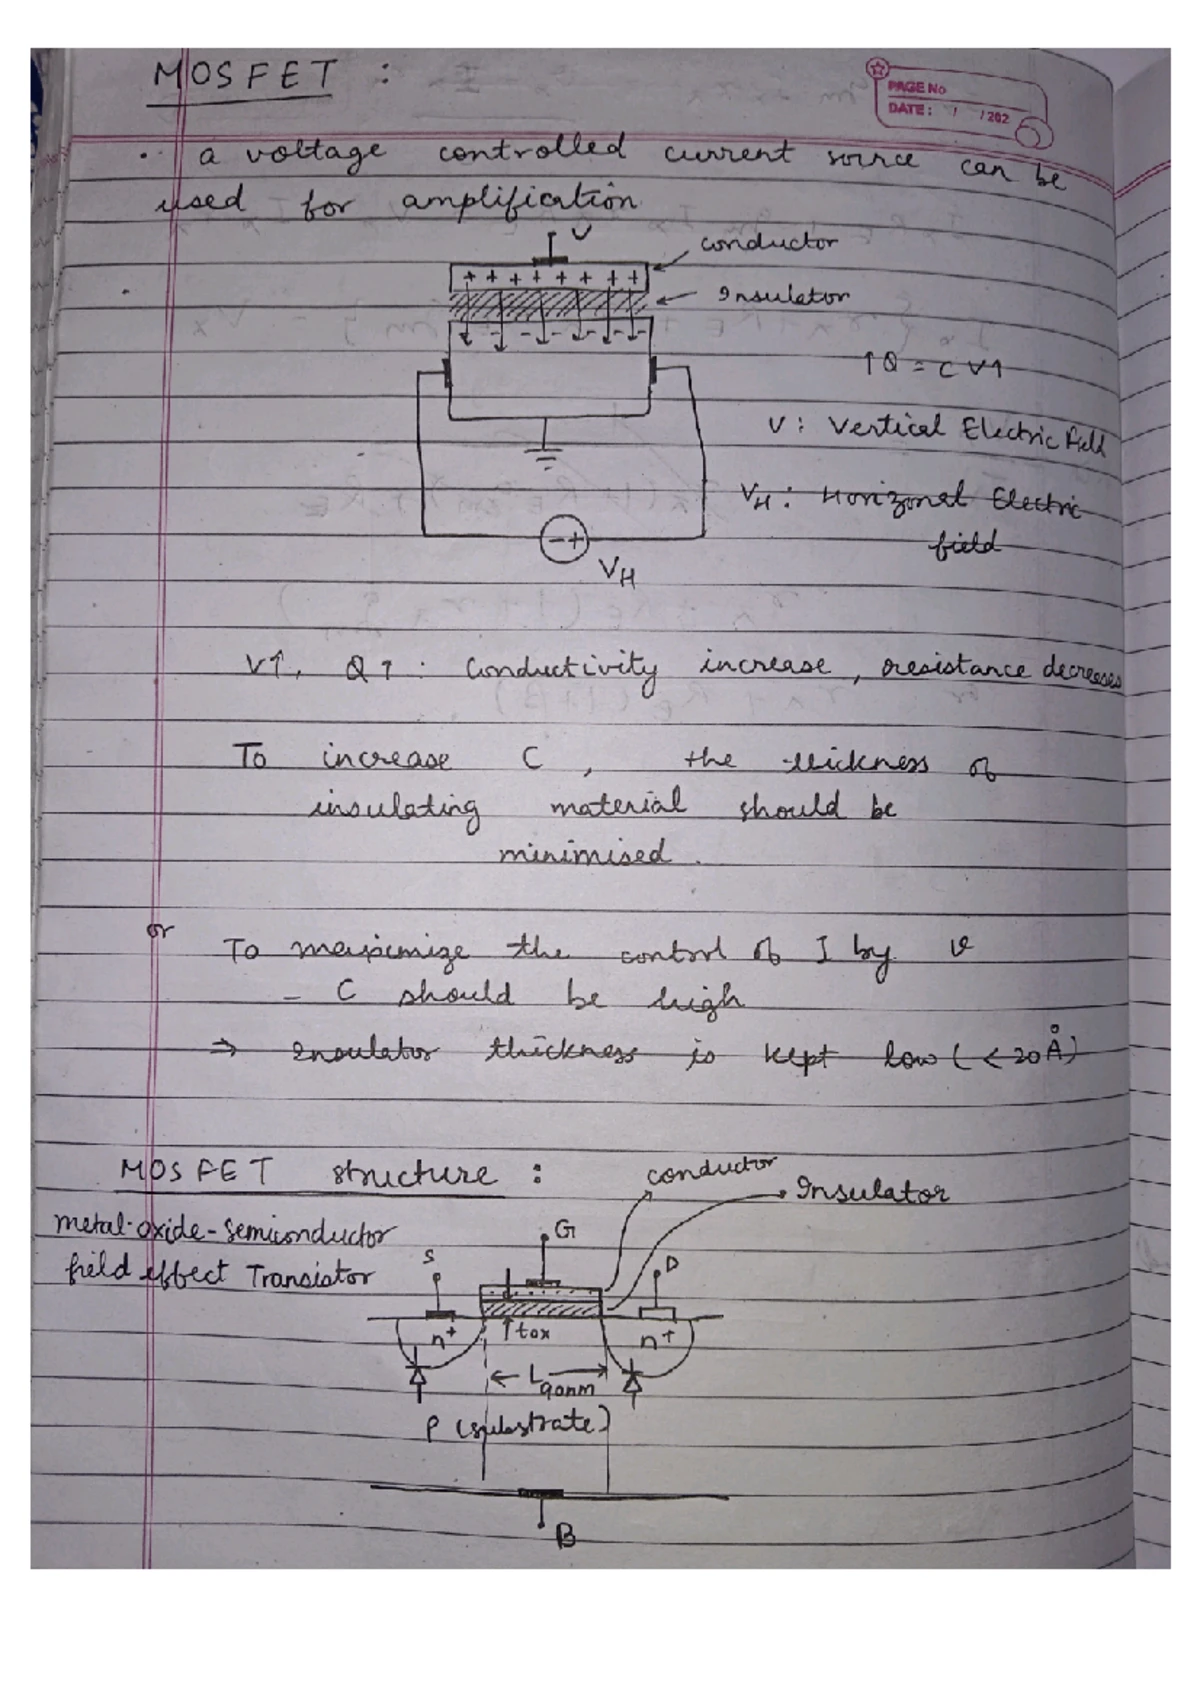 MOSFET :
PAGE No
DATE: / /202
• a voltage controlled current source can be
used for amplification
V
conductor
+ + + + + + + +
Insulator
↑Q = C V↑
V: Vertical Electric field
VH: Horizonal Electric
field
- +
VH
V↑, Q↑ : Conductivity increase, resistance decreases
To increase C, the thickness of
insulating material should be
minimised.
or
To maximize the control of I by v
- C should be high
⇒ Insulator thickness is kept low (<20Å)
MOSFET structure :
conductor
Insulator
metal-oxide-semiconductor
field effect Transistor
G
S
D
n+
↑tox
n+
← L →
90nm
P (substrate)
B